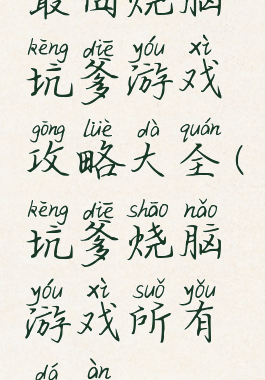 最囧烧脑
kēng diē yóu xì
坑爹游戏
gōng lüè dà quán
攻略大全（
kēng diē shāo nǎo
坑爹烧脑
yóu xì suǒ yǒu
游戏所有
dá àn